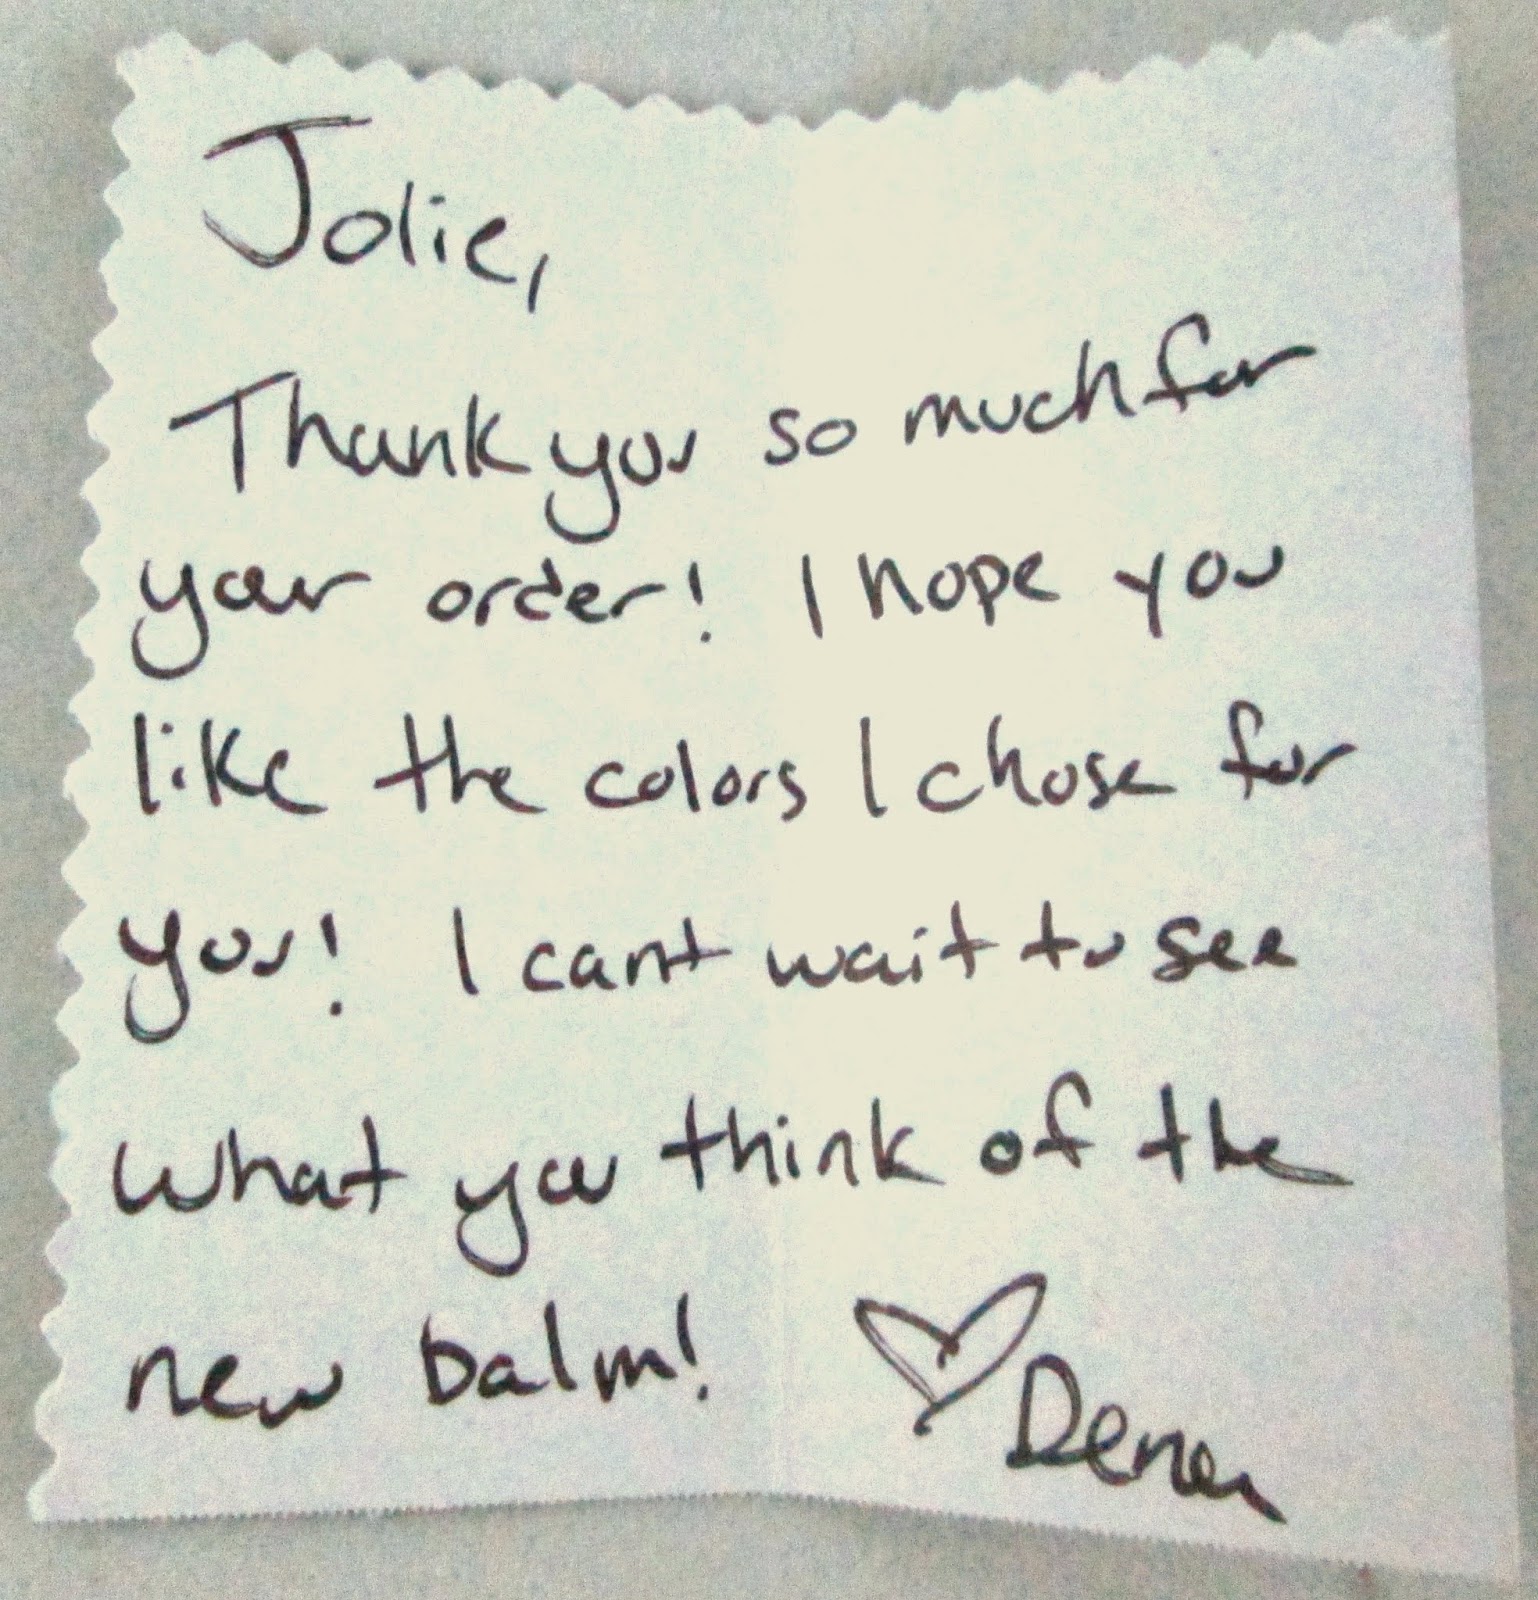 Jolie,
Thank you so much for
your order! I hope you
like the colors I chose for
you! I cant wait to see
what you think of the
new balm!